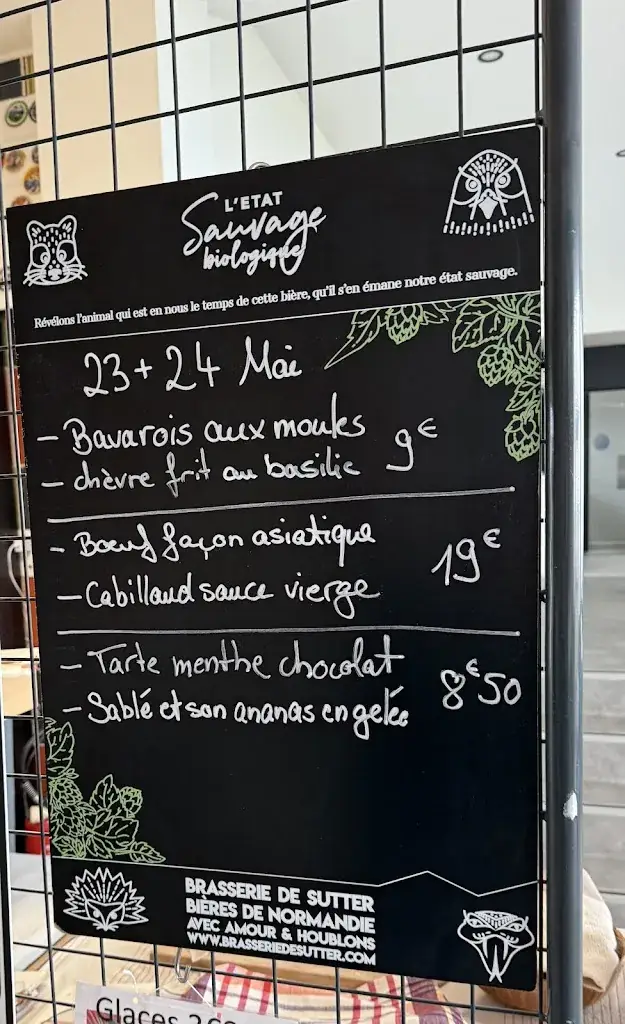 L'ETAT
Sauvage
biologique
Révélons l'animal qui est en nous le temps de cette bière, qu'il s'en émane notre état sauvage.
23 + 24 Mai
- Bavarois aux moules
- chèvre frit au basilic 9€
- Boeuf façon asiatique
- Cabillaud sauce vierge 19€
- Tarte menthe chocolat
- Sablé et son ananas en gelée 8€50
BRASSERIE DE SUTTER
BIÈRES DE NORMANDIE
AVEC AMOUR & HOUBLONS
WWW.BRASSERIEDESUTTER.COM
Glaces